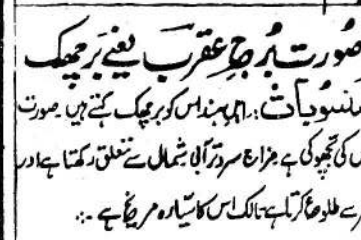 صورت بُرجِ عقرب یعنے بَرِچھک
منسوبات :۔ اہل ہند اس کو برچھک کہتے ہیں ۔ صورت
کی بچھو کی ہے مزاج سرد تر آبی شمال سے تعلق رکھتا ہے اور
سے طلوع کرتا ہے مالک اس کا سیّارہ مریخ ہے ۔:۔